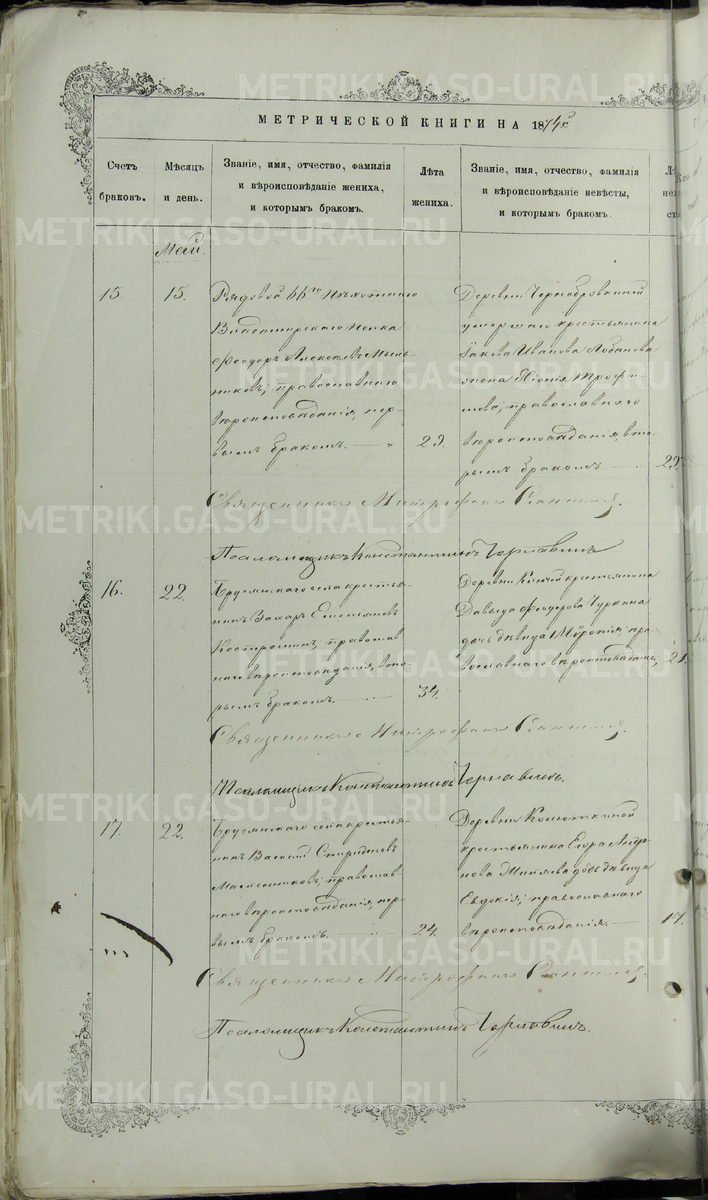 МЕТРИЧЕСКОЙ КНИГИ НА 1874й
Счетъ браковъ.
Мѣсяцъ и день.
Званіе, имя, отчество, фамилія
и вѣроисповѣданіе жениха,
и которымъ бракомъ.
Лѣта
жениха.
Званіе, имя, отчество, фамилія
и вѣроисповѣданіе невѣсты,
и которымъ бракомъ.
Май.
15.
15.
Рядовой 66го Пѣхотнаго
Владимирскаго полка
Феодоръ Алексѣевъ
православнаго
вѣроисповѣданія, пер-
вымъ бракомъ.
29.
Деревни Чернобровкиной
умершаго крестьянина
Іакова Иванова Лобанова
жена Трофи-
мова; православнаго
вѣроисповѣданія, вто-
рымъ бракомъ.
29.
Священникъ Митрофанъ
Псаломщикъ Константинъ Чернавинъ
16.
22.
Брусянскаго села крестья-
нинъ Захаръ
Костромин, православ
наго вѣроисповѣданія, вто-
рымъ бракомъ.
34.
Деревни крестьянина
Давыда Феодорова
дочь дѣвица пра-
вославнаго вѣроисповѣданія,
21.
Священникъ Митрофанъ
Псаломщикъ Константинъ Чернавинъ.
17.
22.
Брусянскаго села крестья-
нинъ Василій Спиридоновъ
Масленниковъ; православ
наго вѣроисповѣданія, пер-
вымъ бракомъ.
24.
Деревни Колюткиной
крестьянина Егора Андро
нова Миняева дочь дѣвица
Евдокія; православнаго
вѣроисповѣданія.
17.
Священникъ Митрофанъ
Псаломщикъ Константинъ Чернавинъ.
METRIKI.GASO-URAL.RU